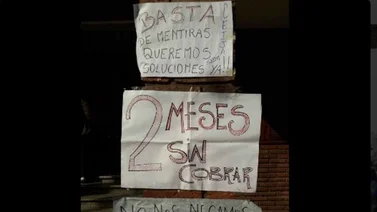 BASTA
DE MENTIRAS
QUEREMOS
SOLUCIONES
YA!!
2 MESES
SIN
COBRAR
NO NOS NEGAMOS